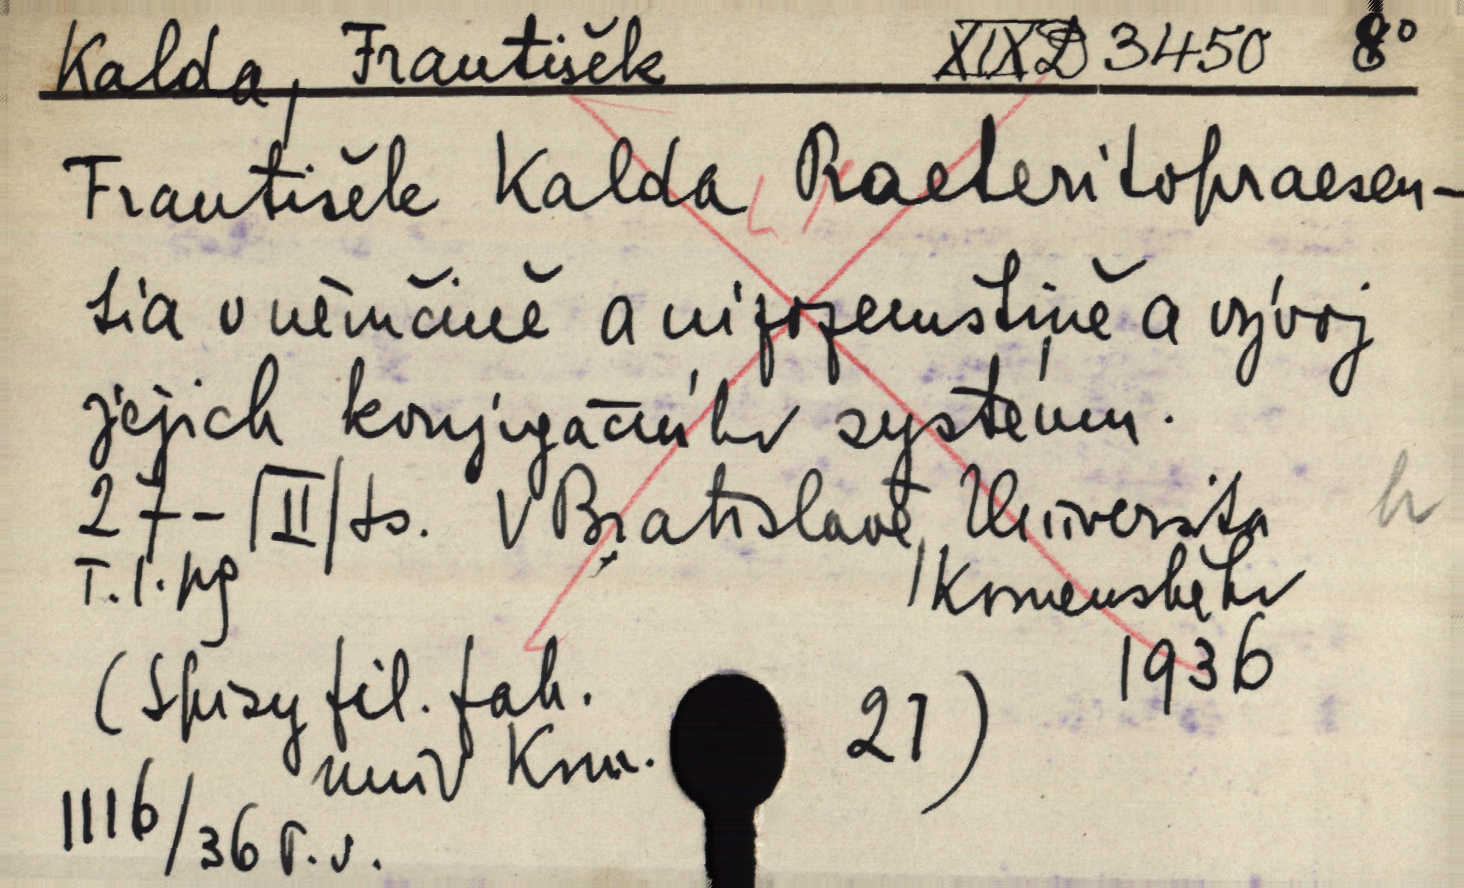 Kalda, František XIX D 3450 8°
František Kalda Praeteritopraesen-
tia v němčině a nizozemštině a vývoj
jejich konjugačního systému.
27 - III/ts. V Bratislavě, Universita
T. 1. pg Komenského
1936
(Spisy fil. fak. 21)
univ Kom.
1116/36 P. v.